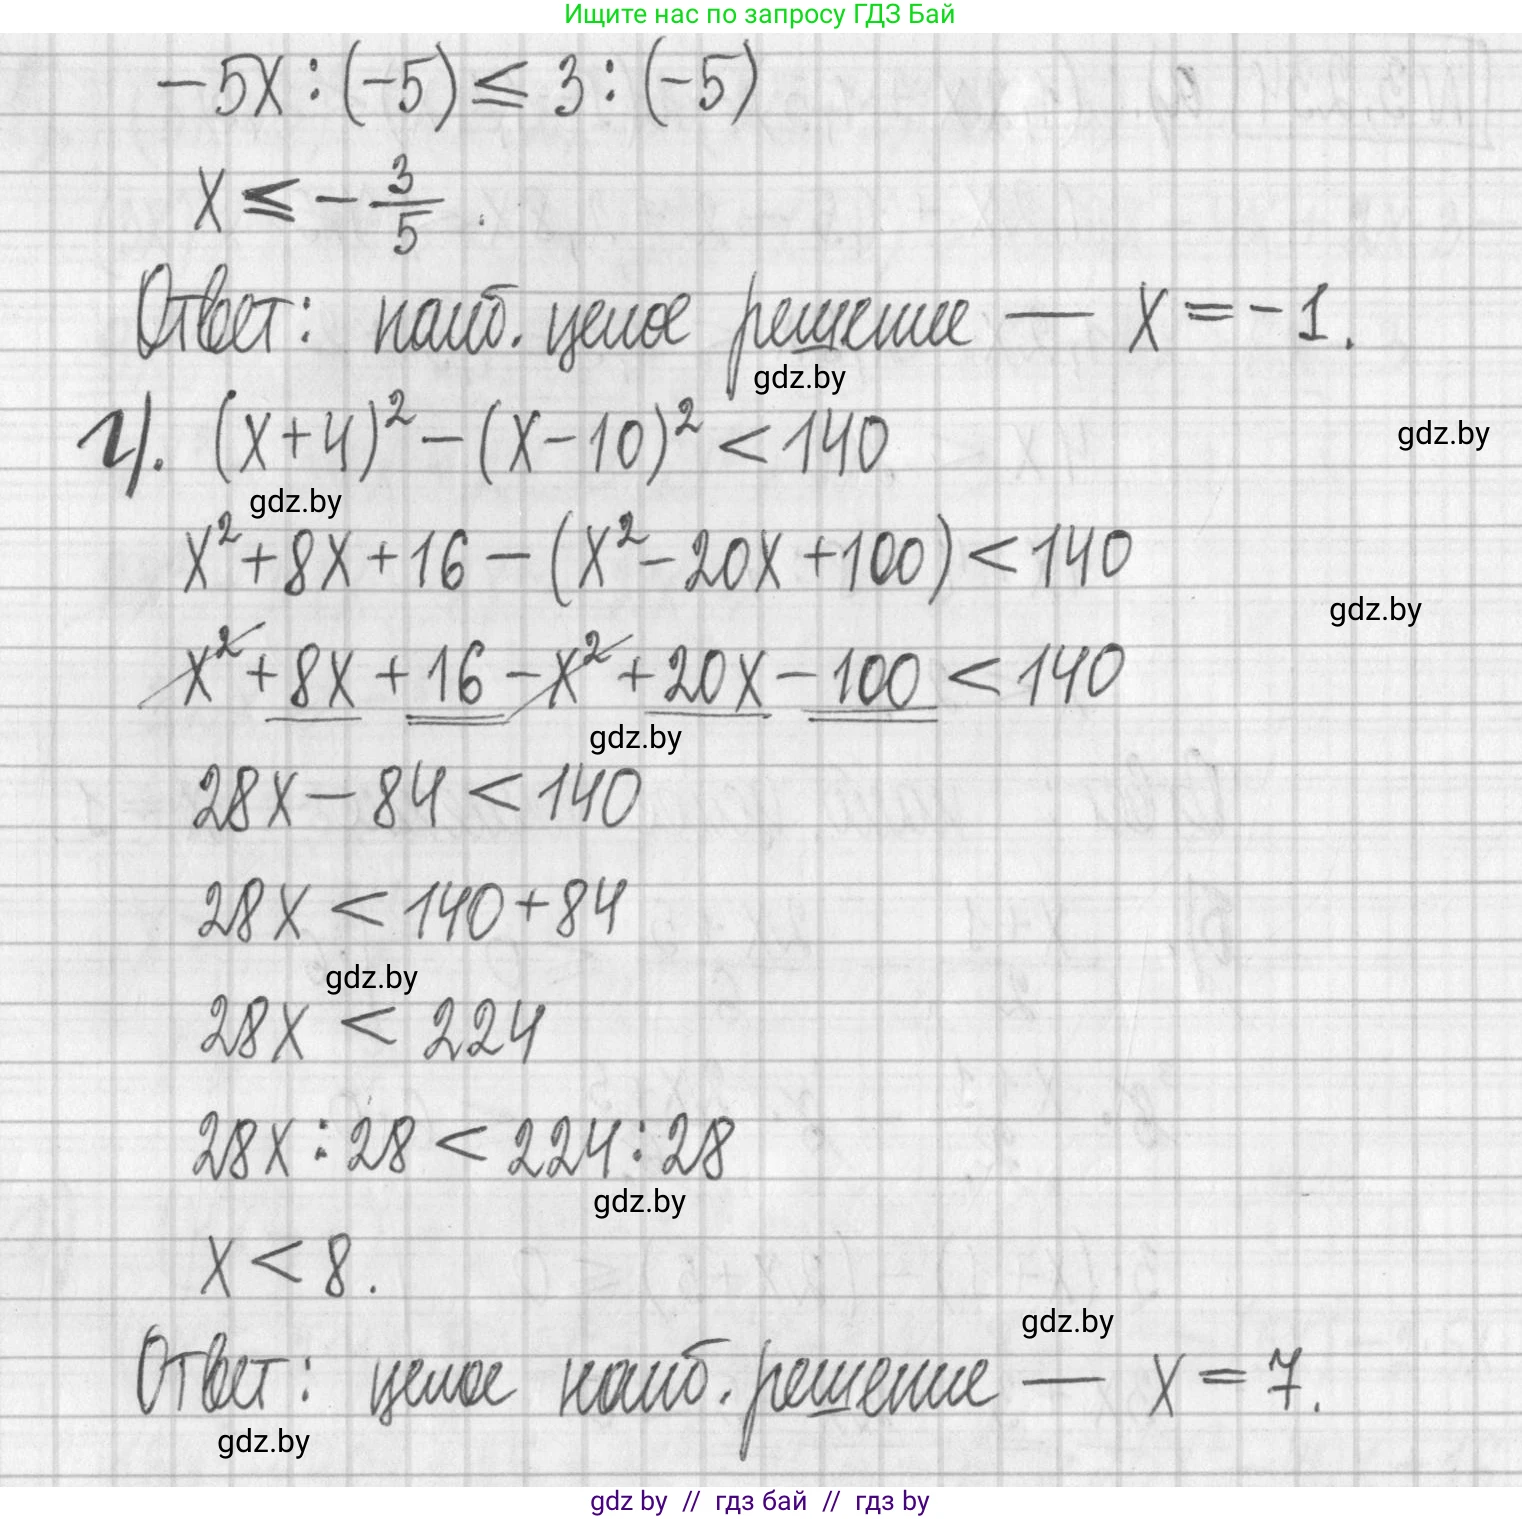 Ищите нас по запросу ГДЗ Бай
-5x : (-5) ≤ 3 : (-5)
x ≤ - 3/5 .
Ответ: наиб. целое решение — x = -1.
gdz.by
г). (x+4)² - (x-10)² < 140
gdz.by
gdz.by
x² + 8x + 16 - (x² - 20x + 100) < 140
gdz.by
x² + 8x + 16 - x² + 20x - 100 < 140
gdz.by
28x - 84 < 140
28x < 140 + 84
gdz.by
28x < 224
28x : 28 < 224 : 28
gdz.by
x < 8.
gdz.by
Ответ: целое наиб. решение — x = 7.
gdz.by
gdz by // гдз бай // гдз by